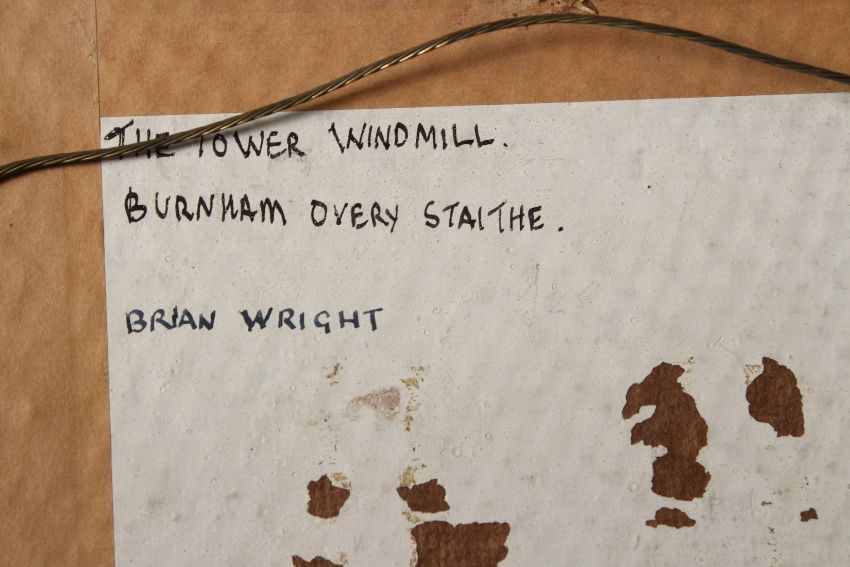 THE TOWER WINDMILL.
BURNHAM OVERY STAITHE.
BRIAN WRIGHT